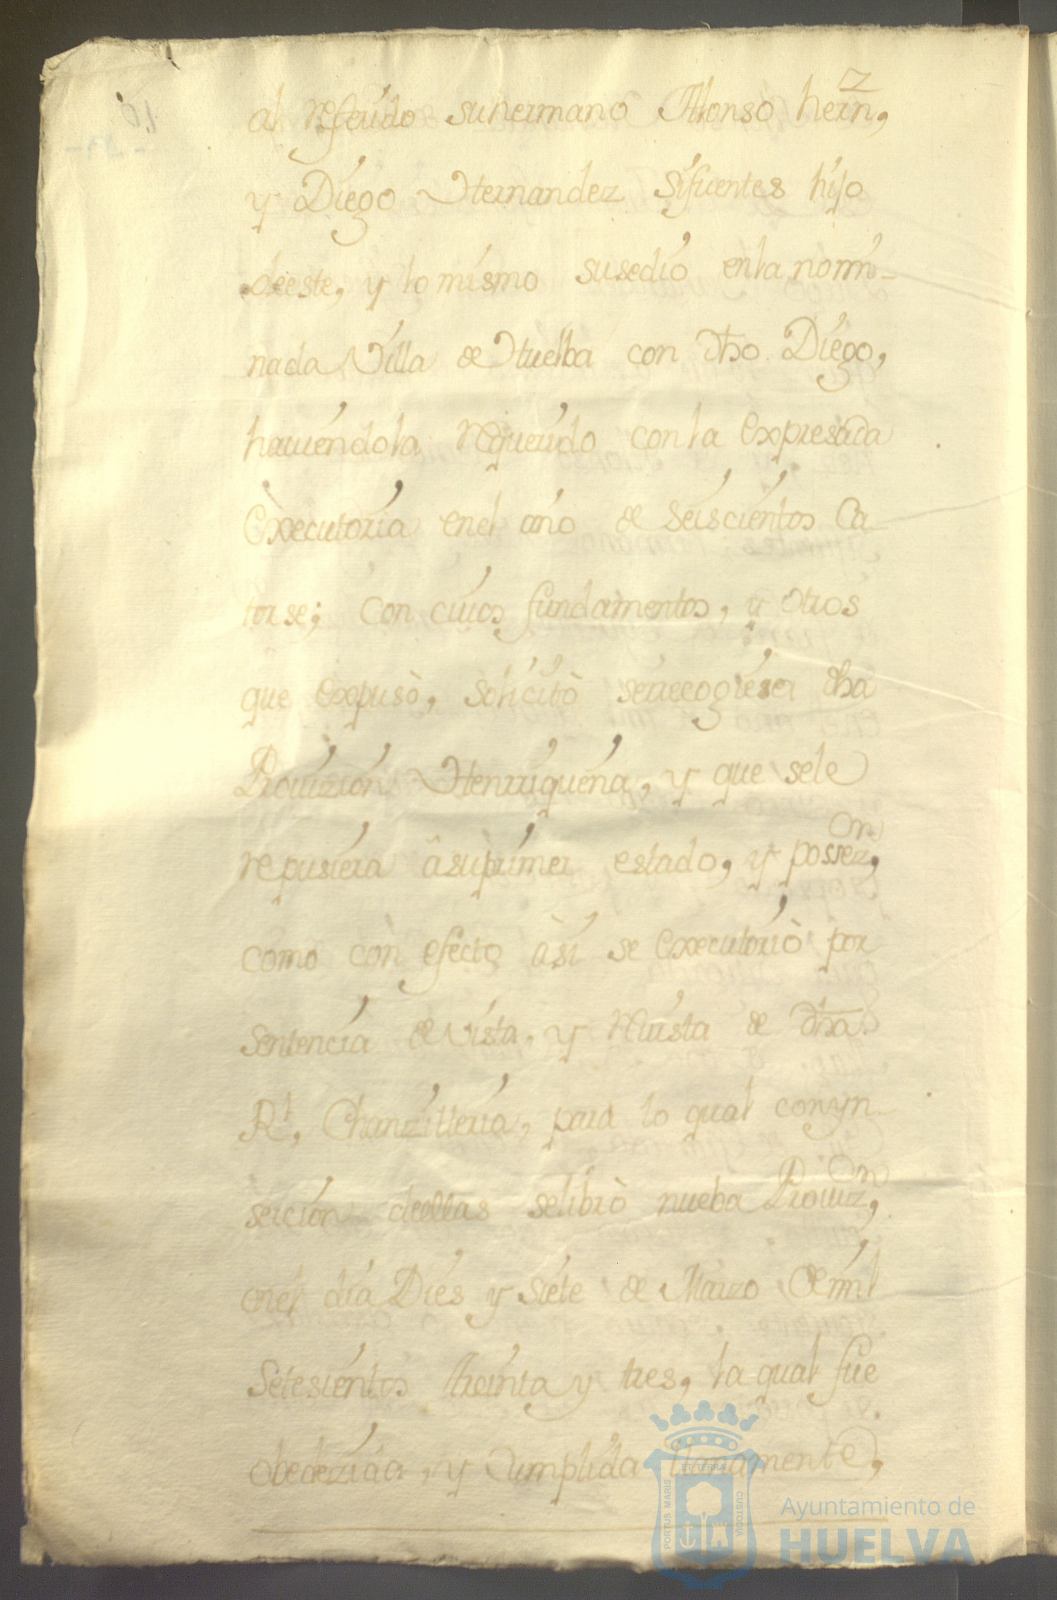 al referido suhermano Alonso hern,z
y Diego Hernandez Sifuentes hijo
deeste, y lo mismo susedio enla nomi-
nada Villa de Huelba con dho. Diego,
haviendola requerido conla expresada
Executoria enel año de seiscientos Ca-
torse; con cuios fundamentos, y otros
que expusò, solicitò serecogiesse dha
Provizion Henrriqueña, y que sele
repusiera âsuprimer estado, y possez,on
como con efecto àsi se executoriò por
sentencia de vista, y revista de dha
Rl, Chanzilleria, para lo qual conyn-
sercion dellas selibrò nueba Proviz,on
enel dia Dies y Siete de Marzo de mil
Setesientos treinta y tres, la qual fue
obedezida, y Cumplida llanamente,
PORTUS MARIS
CUSTODIA
Ayuntamiento de
HUELVA